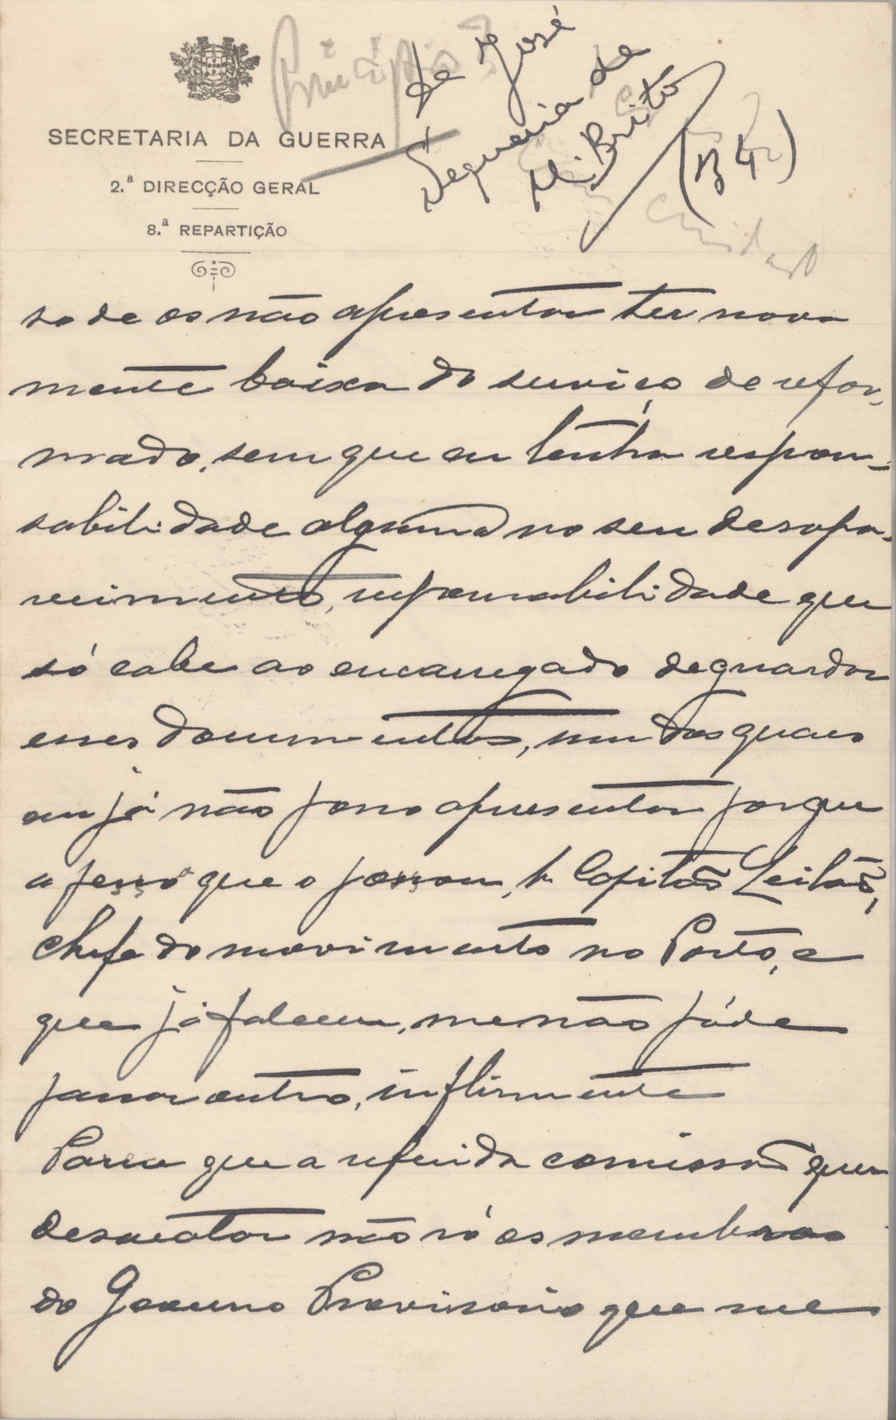 Principia?
de José
Sequeira de
M. Brito
(B 4)
SECRETARIA DA GUERRA
2.ª DIRECÇÃO GERAL
8.ª REPARTIÇÃO
so de os não apresentar ter nova
mente baixa do serviço de refor-
mado, sem que eu tenha respon-
sabilidade alguma no seu desapa-
recimento, responsabilidade que
só cabe ao encarregado de guardar
esses documentos, um dos quaes
eu já não posso apresentar porque
a pessoa que o passou, o Capitão Leitão,
chefe do movimento no Porto, e
que já faleceu, me não póde
passar outro, infelismente
Parece que a referida comissão quer
desacatar não só os membros
do Governo Provisorio que me